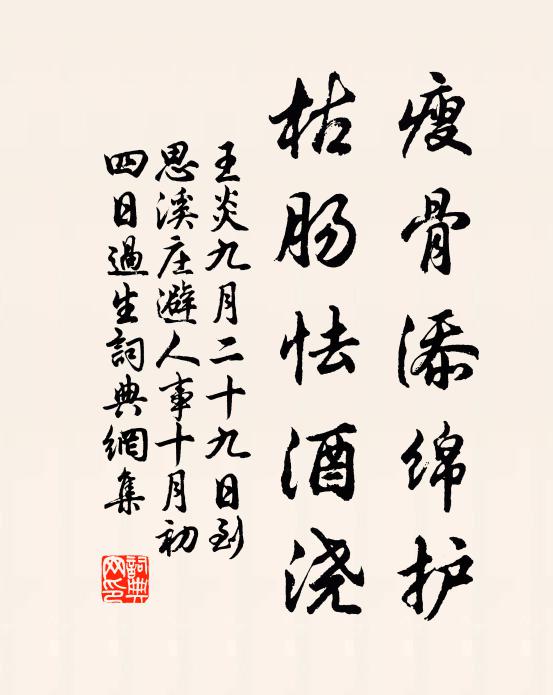 瘦骨添绵护
枯肠怯酒浇
王炎九月二十九日到
思溪庄避人事十月初
四日過生詞典網集
詞典网印